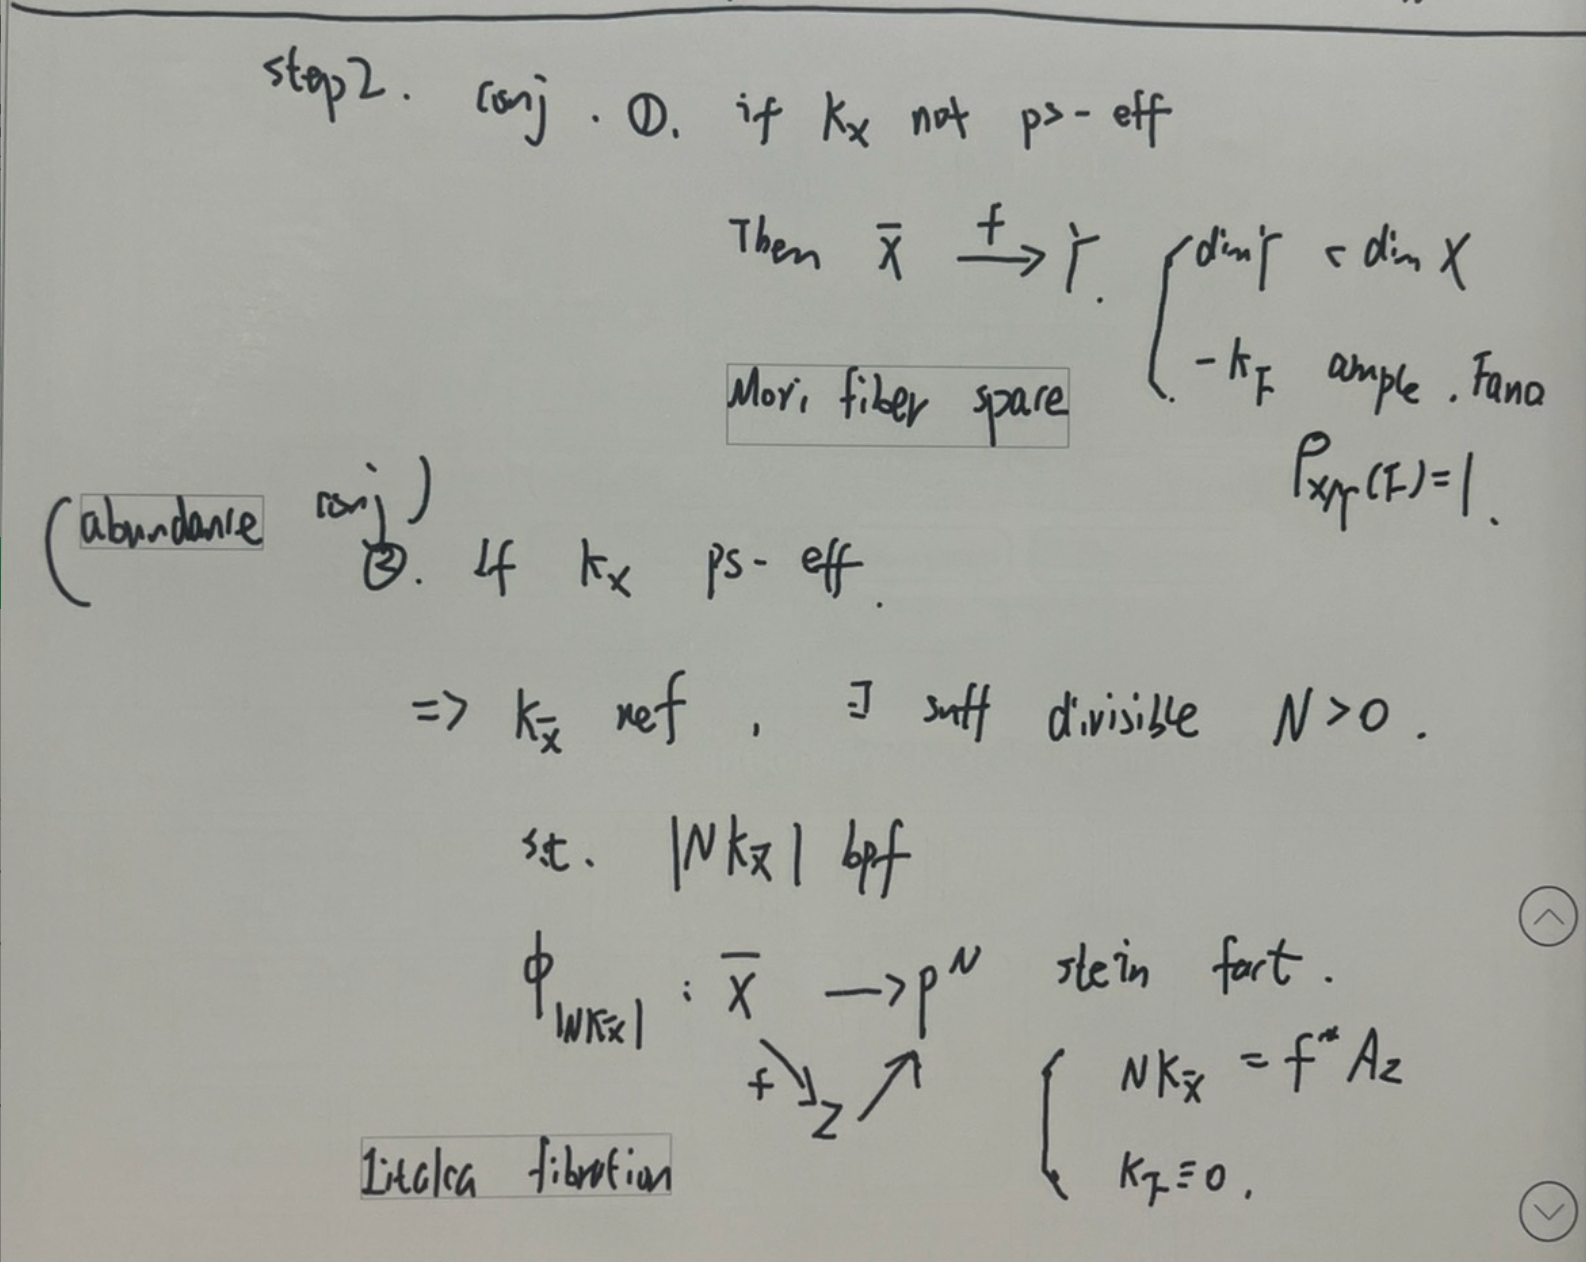 step2. conj. ①. if Kx not ps-eff
Then X̄ →f Y. { dim Y < dim X
-K_F ample. Fano
Mori fiber space
ρ_{X/Y}(F)=1.
(abundance conj)
②. If Kx ps-eff.
=> K_X̄ nef, ∃ suff divisible N>0.
s.t. |NK_X̄| bpf
ϕ_{|NK_X̄|} : X̄ → P^N stein fact.
f ↘ Z ↗ { NK_X̄ = f^* A_Z
Iitaka fibration K_F ≡ 0.